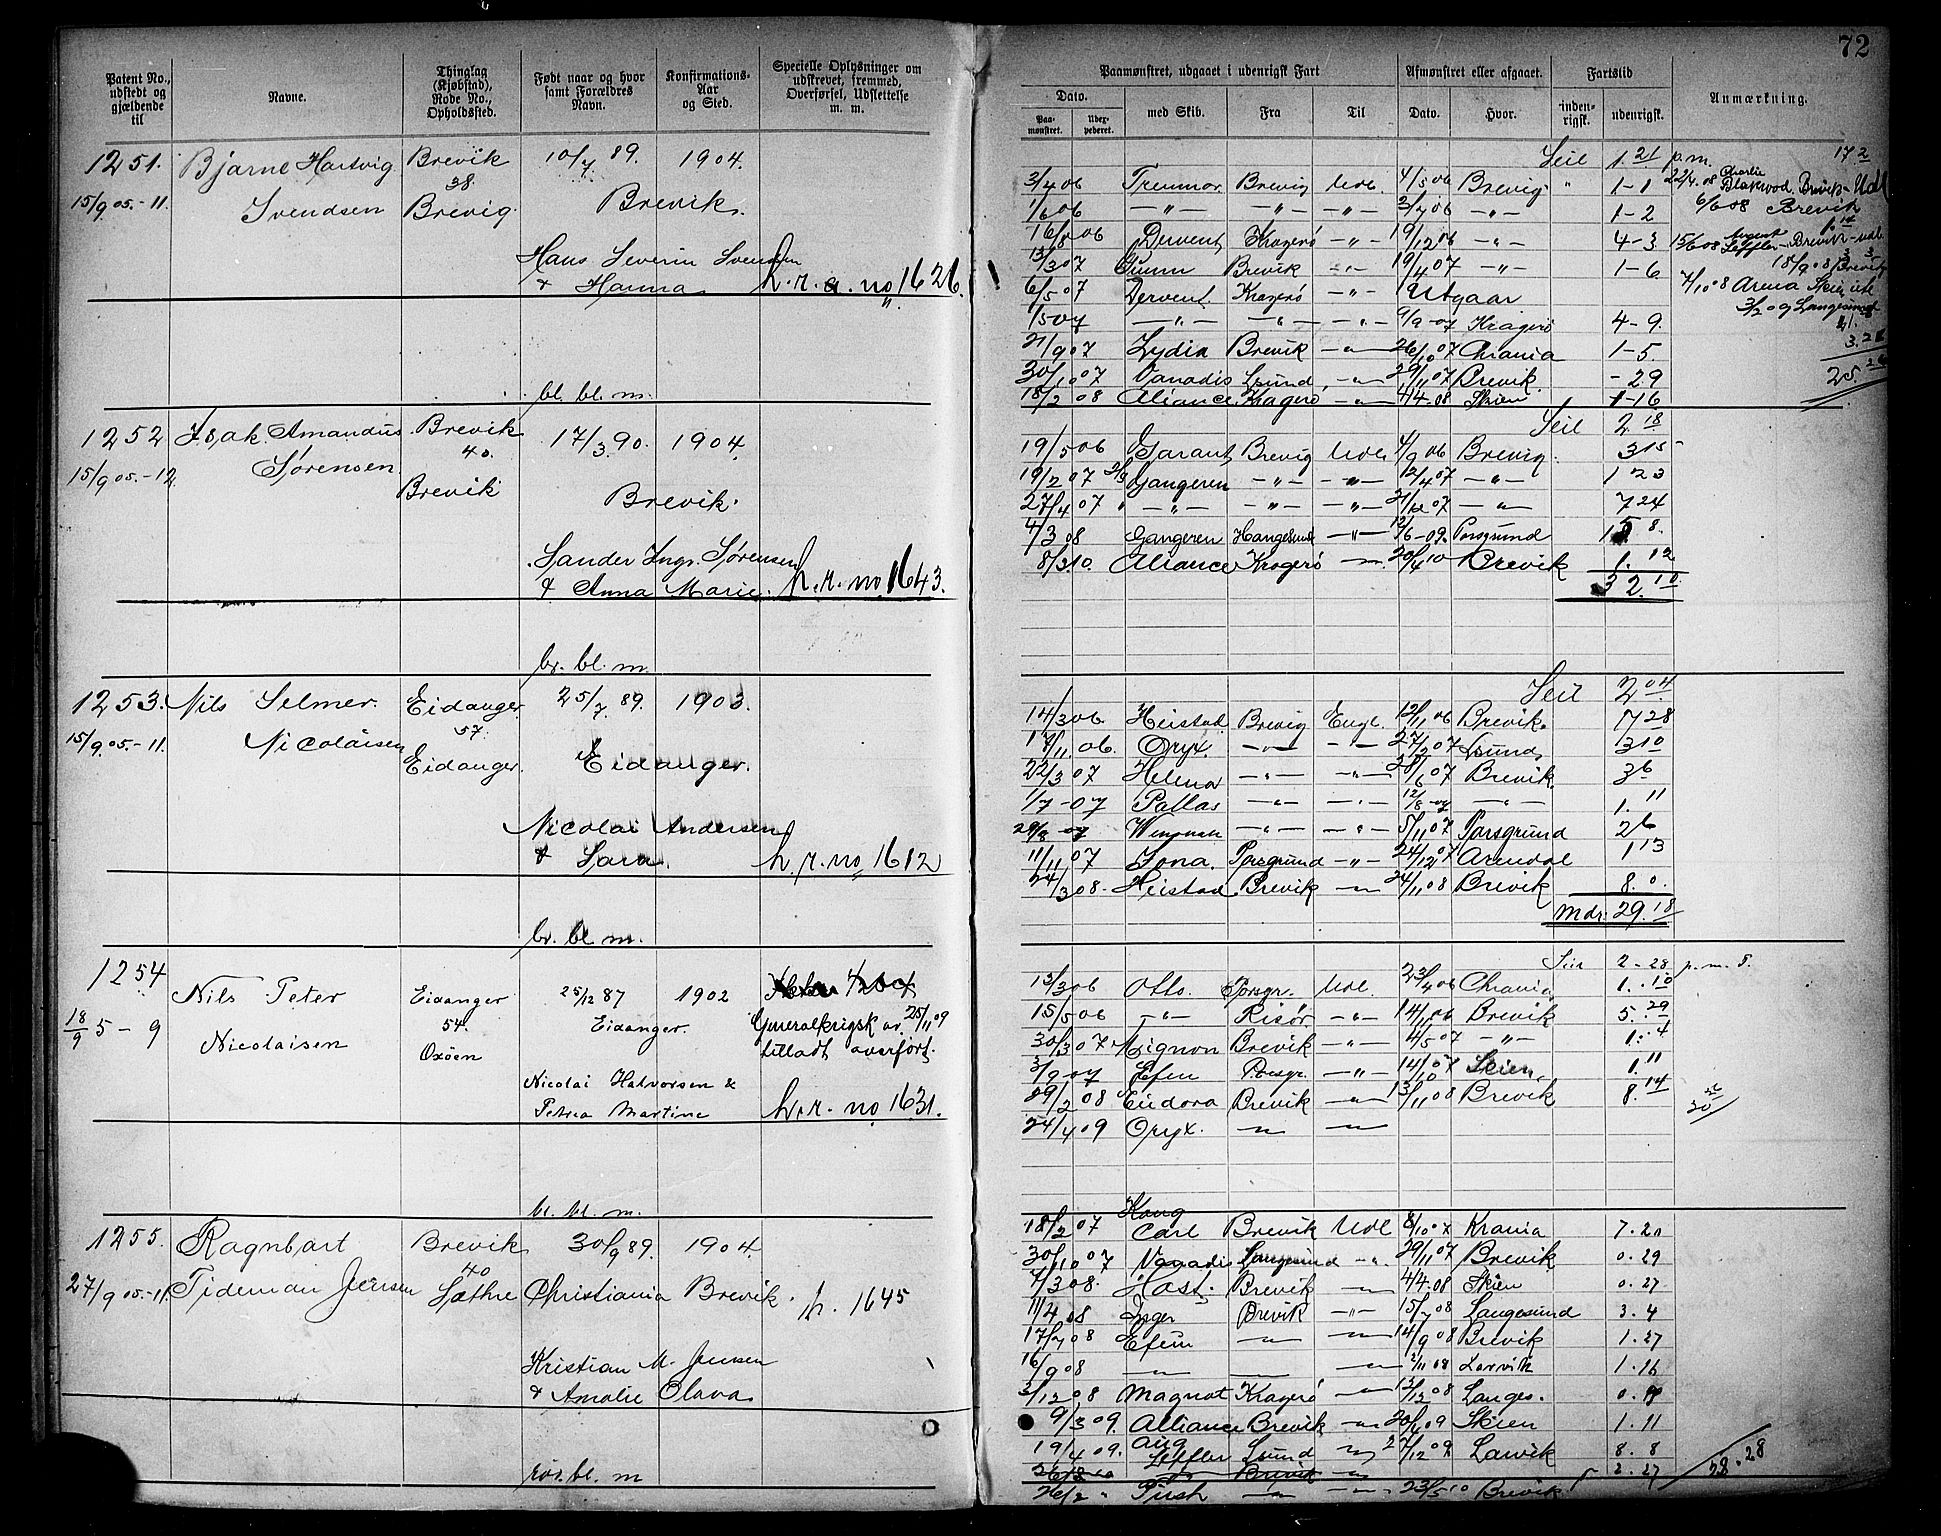 72
Patent No., udstedt og gjældende til
Navne.
Thinglag (Kjøbstad), Rode No., Opholdssted.
Født naar og hvor samt Forældres Navn.
Konfirmations-Aar og Sted.
Specielle Oplysninger om udskrevet, fremmed, Overførsel, Udslettelse m. m.
Paamønstret, udgaaet i udenrigsk Fart
Afmønstret eller afgaaet.
Fartstid
Anmærkning.
Dato.
Paa-mønstret. Udex-pederet.
med Skib. Fra Til Dato. Hvor. inden-rigsk. udenrigsk.
1251. Bjarne Hartvig Brevik 10/7 89. 1904.
38.
15/9 05.-11. Svendsen Brevig. Brevik.
Hans Severin Svendsen
& Hanna h.r.a. no 1626.
bl. bl. m.
Seil 1.21 p.m.
3/4 06 Trenmor Brevig Udl. 4/5 06 Brevig " 1-1
1/6 06 —"— —"— —"— 2/7 06 —"— 1-2
16/8 06 Dervent Kragerø —"— 19/12 06 —"— 4-3
13/3 07 Gunn Brevik —"— 19/4 07 —"— 1-6
6/5 07 Dervent Kragerø —"— Utgaar
1/5 07 —"— —"— —"— 9/9 -07 Kragerø 4-9.
21/9 07 Lydia Brevik —"— 26/10 07 Chrania 1-5.
30/10 07 Vanadis Lsund —"— 29/11 07 Brevik. -29
18/2 08 Aliance Kragerø —"— 4/4.08 Skien 1-16
22/4.08 Charlie Blakwod Brevik-Udl
6/6 08 Brevik
15/6 08 August Leffler Brevik-udl
18/9 08 Brevik
7/10 08 Arena Skien utl
3/2 09 Langesund
3.26
25.26
1252 Isak Amandus Brevik 17/3 90. 1904.
40.
15/9 05.-12 Sørensen Brevik Brevik.
Sander Ingv. Sørensen
& Anna Marie. h.r. no 1643.
br. bl. m.
Seil 2 18
19/5 06 Garant Brevig Udl. 4/9 06 Brevig. 3 15
19/2 07 Gangeren —"— —"— 12/4 07 —"— 1 23
27/4 07 " —"— —"— —"— 21/12 07 —"— 7 24
4/3 08 Gangeren Langesund —"— 12/6-09. Porsgrund
8/3 10. Aliance Kragerø —"— 20/4 10 Brevik 1.12
32.10
1253. Nils Selmer Eidanger 25/7 89. 1903.
57.
15/9 05.-11. Nicolaisen Eidanger. Eidanger.
Nicolai Andersen
& Sara. h.r. no 1612
br. bl. m.
Seil 2 04
14/3 06 Heistad Brevig Engl. 12/11 06 Brevik. 7 28
17/11 06. Oryx. —"— —"— 27/2 07 Lsund 3 10
22/3 07 Helena —"— —"— 28/6 07 Brevik. 3 6
1/7-07 Pallas —"— —"— 12/8-07 —"— 1. 11
29/8-07 —"— —"— 5/11 07 Porsgrund 2 6
11/11 07 Jona. Porsgrund —"— 24/12 07 Arendal 1 13
24/3 08. Heistad Brevik —"— 24/11 08 Brevik 8.0.
Mdr: 29.18
1254 Nils Peter Eidanger 25/12 87 1902
18/9 5 - 9 Nicolaisen 54. Oxøen Eidanger
Generalkrigsk av 25/11 09
tilladt overført.
Nicolai Halvorsen &
Petrea Martine h.r. no 1631.
bl. bl. m.
Seil 2-28 p.m. S.
13/3 06 Otto. Porsgr. Udl. 23/4 06 Chrania 1..10
15/5 06 —"— Risør —"— 14/11 06 Brevik 5.29
30/3 07 Mignon Brevik —"— 4/5 07 —"— 1.4
3/9 07 Efen Porsgr. —"— 14/10 07 Skien, 1.11
29/2 08 Eudora Brevik —"— 13/11 08 Brevik 8.14
24/4 09 Oryx. —"— —"—
1255. Ragnbart Brevik 30/9 89. 1904.
40
27/9 05.-11. Tideman Jensen Sathre Christiania Brevik. h. 1645
Kristian M. Jensen
& Amalie Olava
rør. bl. m
18/2 07 Kong Carl Brevik Udl 8/10 07 Krania 7.20
30/10 07 Vanadis Langesund —"— 29/11 07 Brevik 0.29
7/3 08. Hast. Brevik —"— 4/4.08 Skien 0.27
11/4 08 Inger Brevik —"— 15/7 08 Langesund 3.4
17/7 08 Efeu —"— —"— 14/9 08 Brevik 1.27
16/9 08 —"— —"— 2/11 08 Larvik 1.16
3/12 08 Magnat Kragerø —"— 13/12 08 Langes.
9/3 09. Alliance Brevik —"— 20/4 09 Skien 1.11
19/4 09. Aug Leffler Lsund —"— 27/12 09 Larvik 8.8
Brevik —"— 2.27
26/2 " Push —"— —"— 23/5 10 Brevik